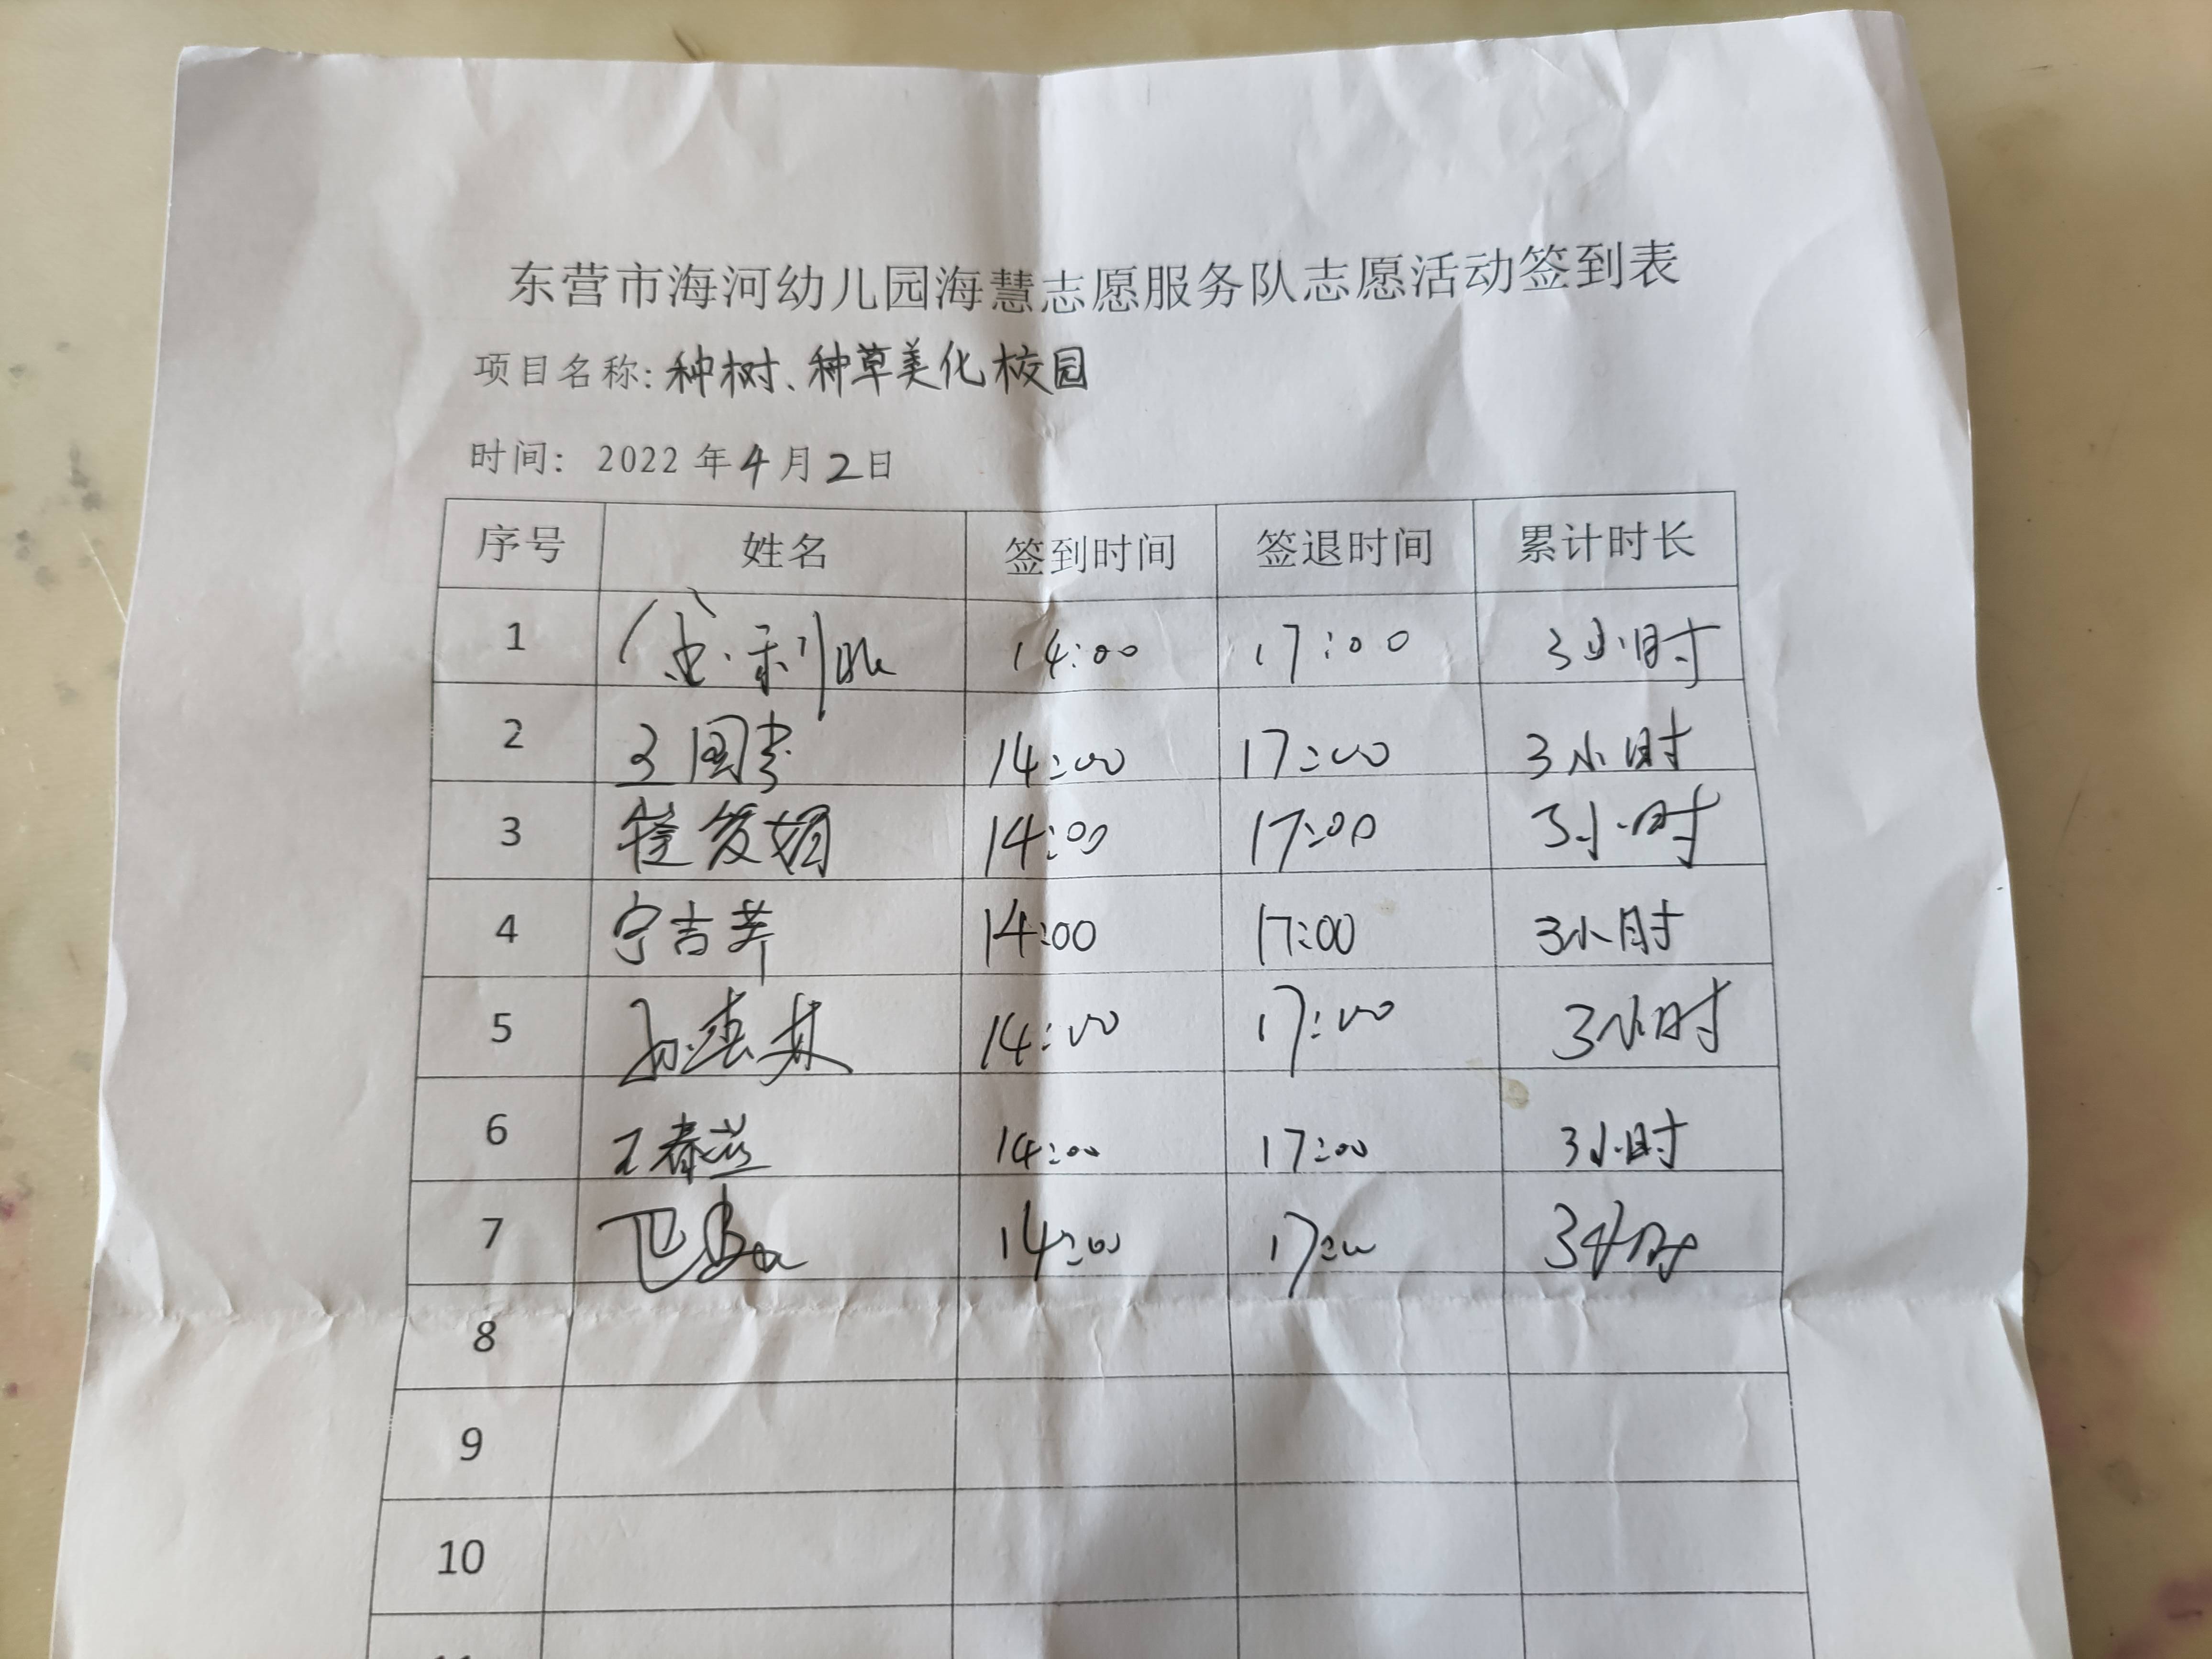 东营市海河幼儿园海慧志愿服务队志愿活动签到表
项目名称:种树、种草美化校园
时间: 2022年4月2日
序号 姓名 签到时间 签退时间 累计时长
1 14:00 17:00 3小时
2 14:00 17:00 3小时
3 14:00 17:00 3小时
4 宁吉 14:00 17:00 3小时
5 14:00 17:00 3小时
6 王春 14:00 17:00 3小时
7 14:00 17:00 3小时
8
9
10